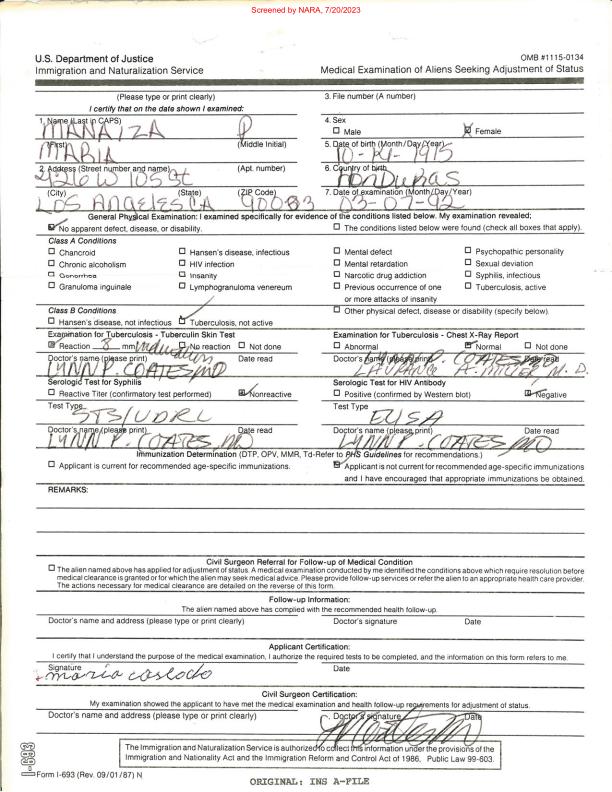 Screened by NARA, 7/20/2023
U.S. Department of Justice
Immigration and Naturalization Service
OMB #1115-0134
Medical Examination of Aliens Seeking Adjustment of Status
(Please type or print clearly)
I certify that on the date shown I examined:
3. File number (A number)
1. Name (Last in CAPS)
MANAIZA P
4. Sex
Male
Female
(First) (Middle Initial)
MARIA
5. Date of birth (Month/Day/Year)
1915
2. Address (Street number and name) (Apt. number)
4216 W 105 St
6. Country of birth
HONDURAS
(City) (State) (ZIP Code)
LOS ANGELES CA
7. Date of examination (Month/Day/Year)
03-07-92
General Physical Examination: I examined specifically for evidence of the conditions listed below. My examination revealed;
No apparent defect, disease, or disability.
The conditions listed below were found (check all boxes that apply).
Class A Conditions
Chancroid Hansen's disease, infectious Mental defect Psychopathic personality
Chronic alcoholism HIV infection Mental retardation Sexual deviation
Gonorrhea Insanity Narcotic drug addiction Syphilis, infectious
Granuloma inguinale Lymphogranuloma venereum Previous occurrence of one Tuberculosis, active
or more attacks of insanity
Class B Conditions
Other physical defect, disease or disability (specify below).
Hansen's disease, not infectious Tuberculosis, not active
Examination for Tuberculosis - Tuberculin Skin Test
Reaction 8 mm induration No reaction Not done
Doctor's name (please print) Date read
LYNN P. COATES MD
Examination for Tuberculosis - Chest X-Ray Report
Abnormal Normal Not done
Doctor's name (please print) Date read
COATES
A. MILLER M.D.
Serologic Test for Syphilis
Reactive Titer (confirmatory test performed) Nonreactive
Test Type
STS/VDRL
Doctor's name (please print) Date read
LYNN P. COATES MD
Serologic Test for HIV Antibody
Positive (confirmed by Western blot) Negative
Test Type
ELISA
Doctor's name (please print) Date read
LYNN P. COATES MD
Immunization Determination (DTP, OPV, MMR, Td-Refer to PHS Guidelines for recommendations.)
Applicant is current for recommended age-specific immunizations.
Applicant is not current for recommended age-specific immunizations
and I have encouraged that appropriate immunizations be obtained.
REMARKS:
Civil Surgeon Referral for Follow-up of Medical Condition
The alien named above has applied for adjustment of status. A medical examination conducted by me identified the conditions above which require resolution before
medical clearance is granted or for which the alien may seek medical advice. Please provide follow-up services or refer the alien to an appropriate health care provider.
The actions necessary for medical clearance are detailed on the reverse of this form.
Follow-up Information:
The alien named above has complied with the recommended health follow-up.
Doctor's name and address (please type or print clearly) Doctor's signature Date
Applicant Certification:
I certify that I understand the purpose of the medical examination, I authorize the required tests to be completed, and the information on this form refers to me.
Signature Date
maria
Civil Surgeon Certification:
My examination showed the applicant to have met the medical examination and health follow-up requirements for adjustment of status.
Doctor's name and address (please type or print clearly) Doctor's signature Date
The Immigration and Naturalization Service is authorized to collect this information under the provisions of the
Immigration and Nationality Act and the Immigration Reform and Control Act of 1986, Public Law 99-603.
I-693
Form I-693 (Rev. 09/01/87) N
ORIGINAL: INS A-FILE